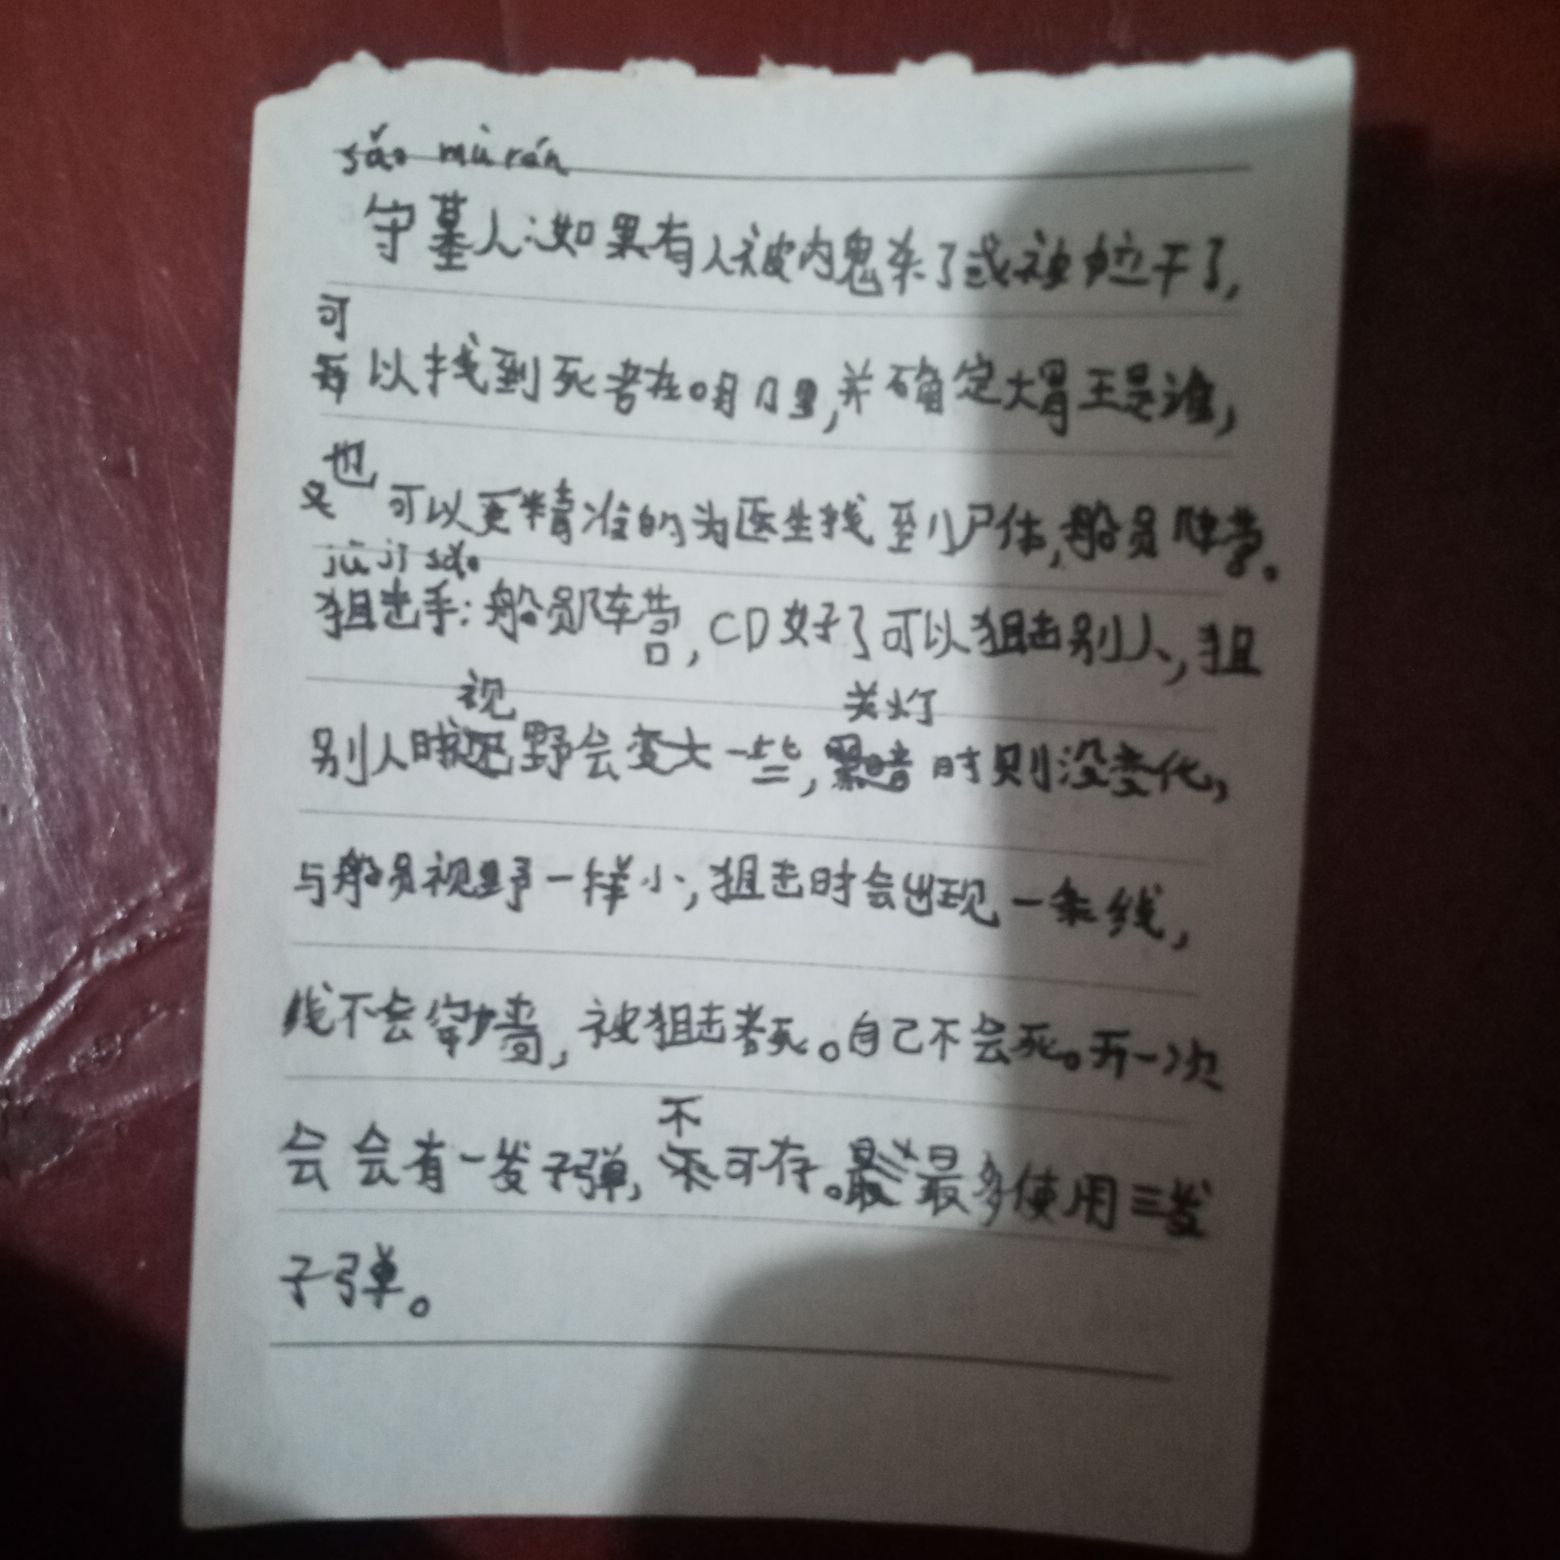 sǎo mù rén
守墓人:如果有人被内鬼杀了或被拉干了,
可
以找到死者在哪儿里,并确定大胃王是谁,
也
可以更精准的为医生找到尸体,船员阵营。
jū jī sǎo
狙击手:船员阵营,CD好了可以狙击别人,狙
视 关灯
别人时野会变大一些,时则没变化,
与船员视野一样小,狙击时会出现一条线,
线不会穿墙,被狙击者死。自己不会死。开一次
不
会会有一发子弹,可存。最多使用三发
子弹。